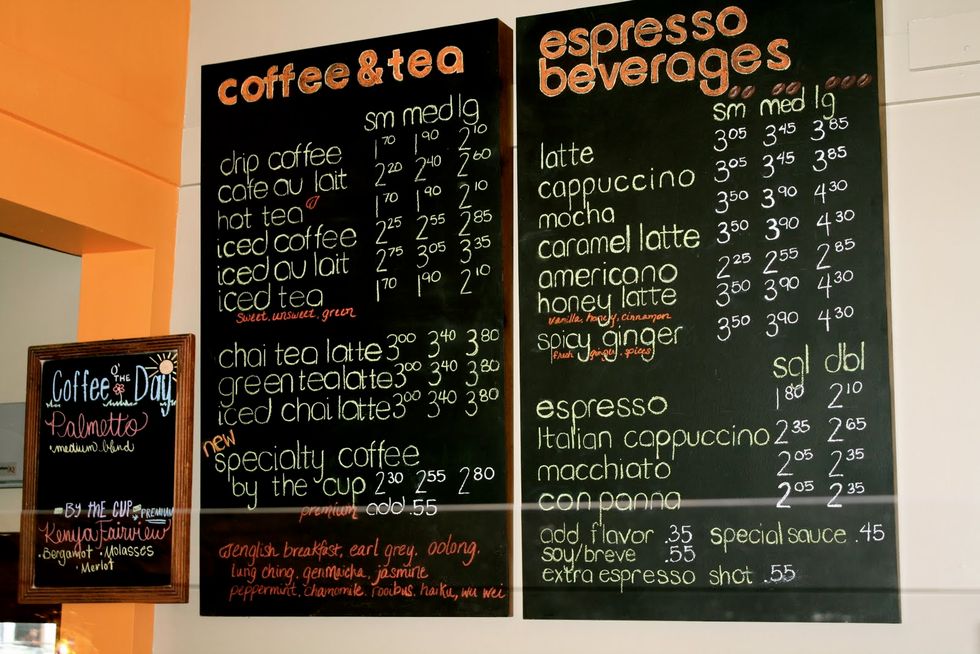 Coffee O' THE Day
Palmetto
medium blend
BY the CUP PREMIUM
Kenya Fairview
Bergamot Molasses
Merlot
coffee & tea
sm med lg
drip coffee 1.70 1.90 2.10
cafe au lait 2.20 2.40 2.60
hot tea 1.70 1.90 2.10
iced coffee 2.25 2.55 2.85
iced au lait 2.75 3.05 3.35
iced tea 1.70 1.90 2.10
sweet, unsweet, green
chai tea latte 3.00 3.40 3.80
green tea latte 3.00 3.40 3.80
iced chai latte 3.00 3.40 3.80
new
specialty coffee
by the cup 2.30 2.55 2.80
premium add .55
english breakfast, earl grey, oolong,
lung ching, genmaicha, jasmine
peppermint, chamomile, rooibus, haiku, wu wei
espresso
beverages
sm med lg
latte 3.05 3.45 3.85
cappuccino 3.05 3.45 3.85
mocha 3.50 3.90 4.30
caramel latte 3.50 3.90 4.30
americano 2.25 2.55 2.85
honey latte 3.50 3.90 4.30
vanilla, honey, cinnamon
spicy ginger 3.50 3.90 4.30
fresh ginger, spices
sgl dbl
espresso 1.80 2.10
Italian cappuccino 2.35 2.65
macchiato 2.05 2.35
con panna 2.05 2.35
add flavor .35 special sauce .45
soy/breve .55
extra espresso shot .55